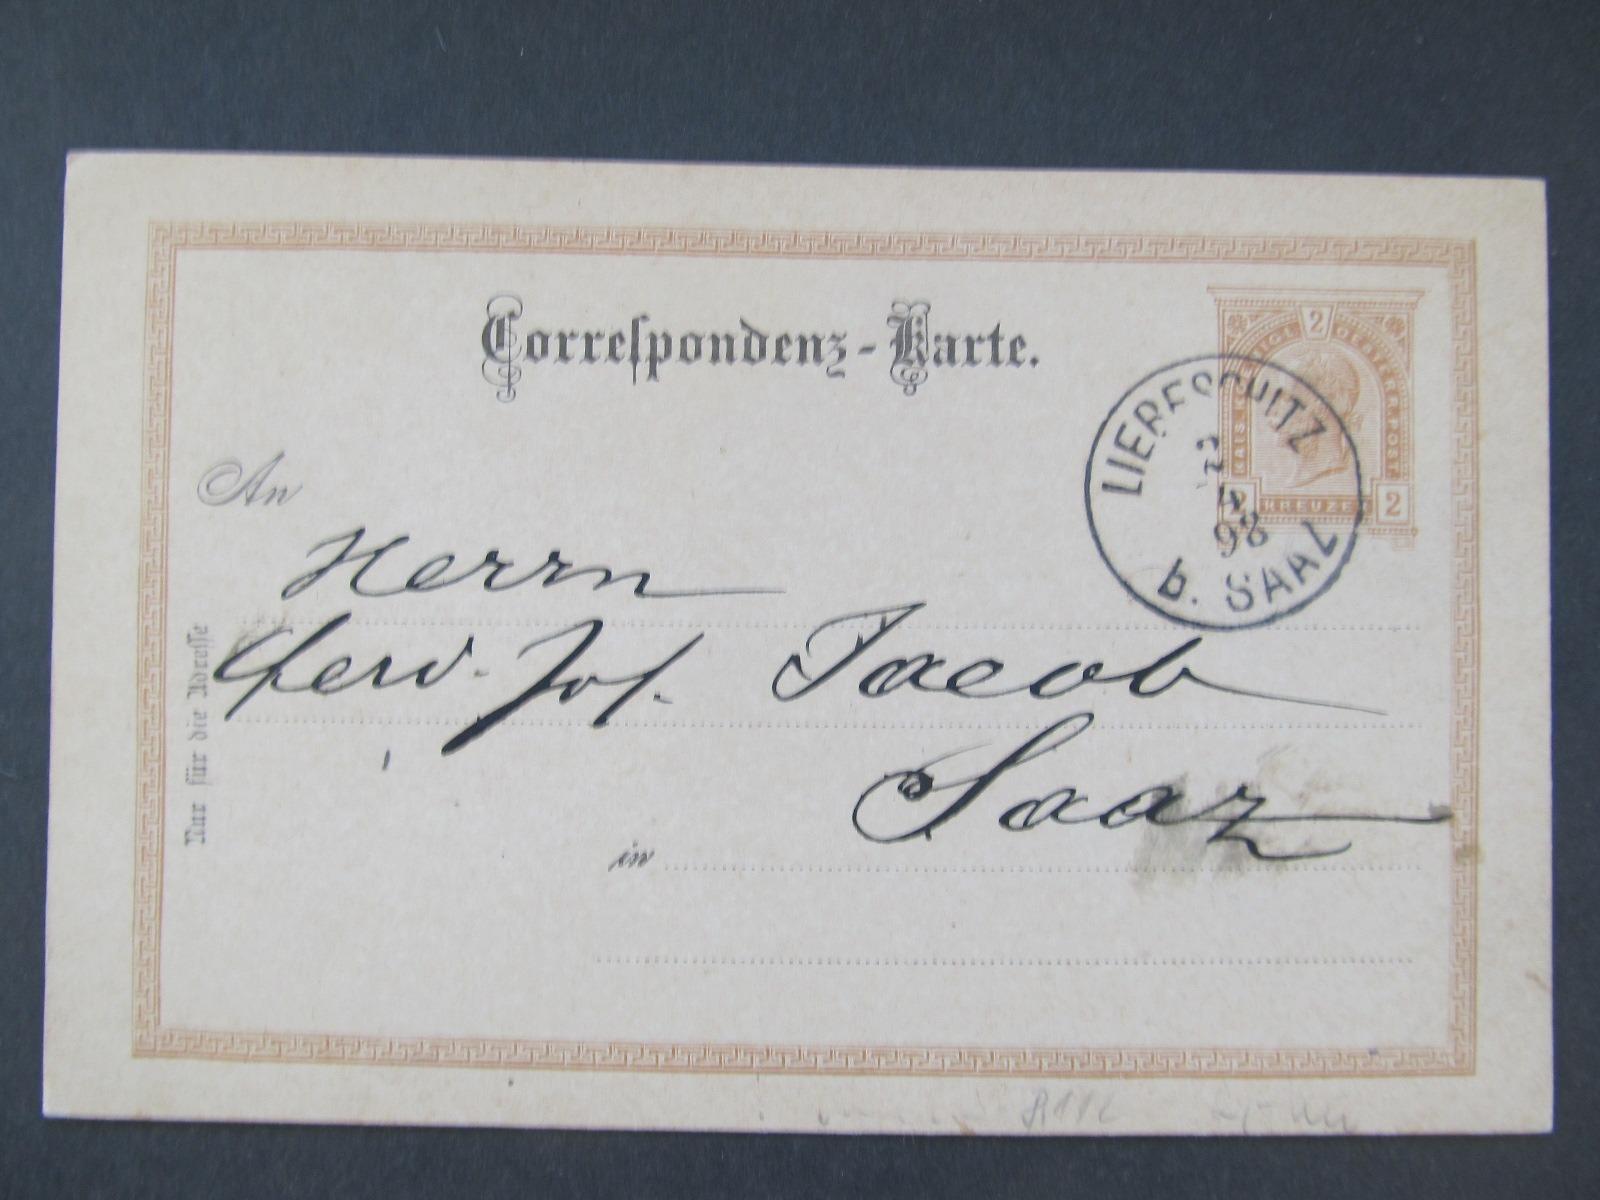 Correſpondenz-Karte.
2
KAIS. KÖNIGL. OESTERR. POST
2 KREUZER 2
LIEBESCHITZ
4
98
b. SAAZ
An
Herrn
Ferd. Jos. Jacob
Saaz
in
Nur für die Adreſſe